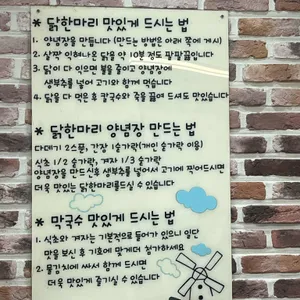 * 닭한마리 맛있게 드시는 법
1. 양념장을 만듭니다 (만드는 방법은 아래 쪽에 게시)
2. 살짝 익혀나온 닭을 약 10분 정도 팔팔끓입니다
3. 닭이 다 익으면 불을 줄이고 양념장에
생부추를 넣어 고기와 함께 먹습니다
4. 닭을 다 먹은 후 칼국수와 죽을 끓여 드셔도 맛있습니다
* 닭한마리 양념장 만드는 법
다데기 2스푼, 간장 1숟가락(거의 숟가락 이용)
식초 1/2 숟가락, 겨자 1/3 숟가락
양념장을 만드신후 생부추를 넣어서 고기에 찍어드시면
더욱 맛있는 닭한마리를드실 수 있습니다
* 막국수 맛있게 드시는 법
1. 식초와 겨자는 기본적으로 들어가 있으니 일단
맛을 보신 후 기호에 맞게더 첨가하세요
2. 물김치에 싸서 함께 드시면
더욱 맛있게 즐기실 수 있습니다